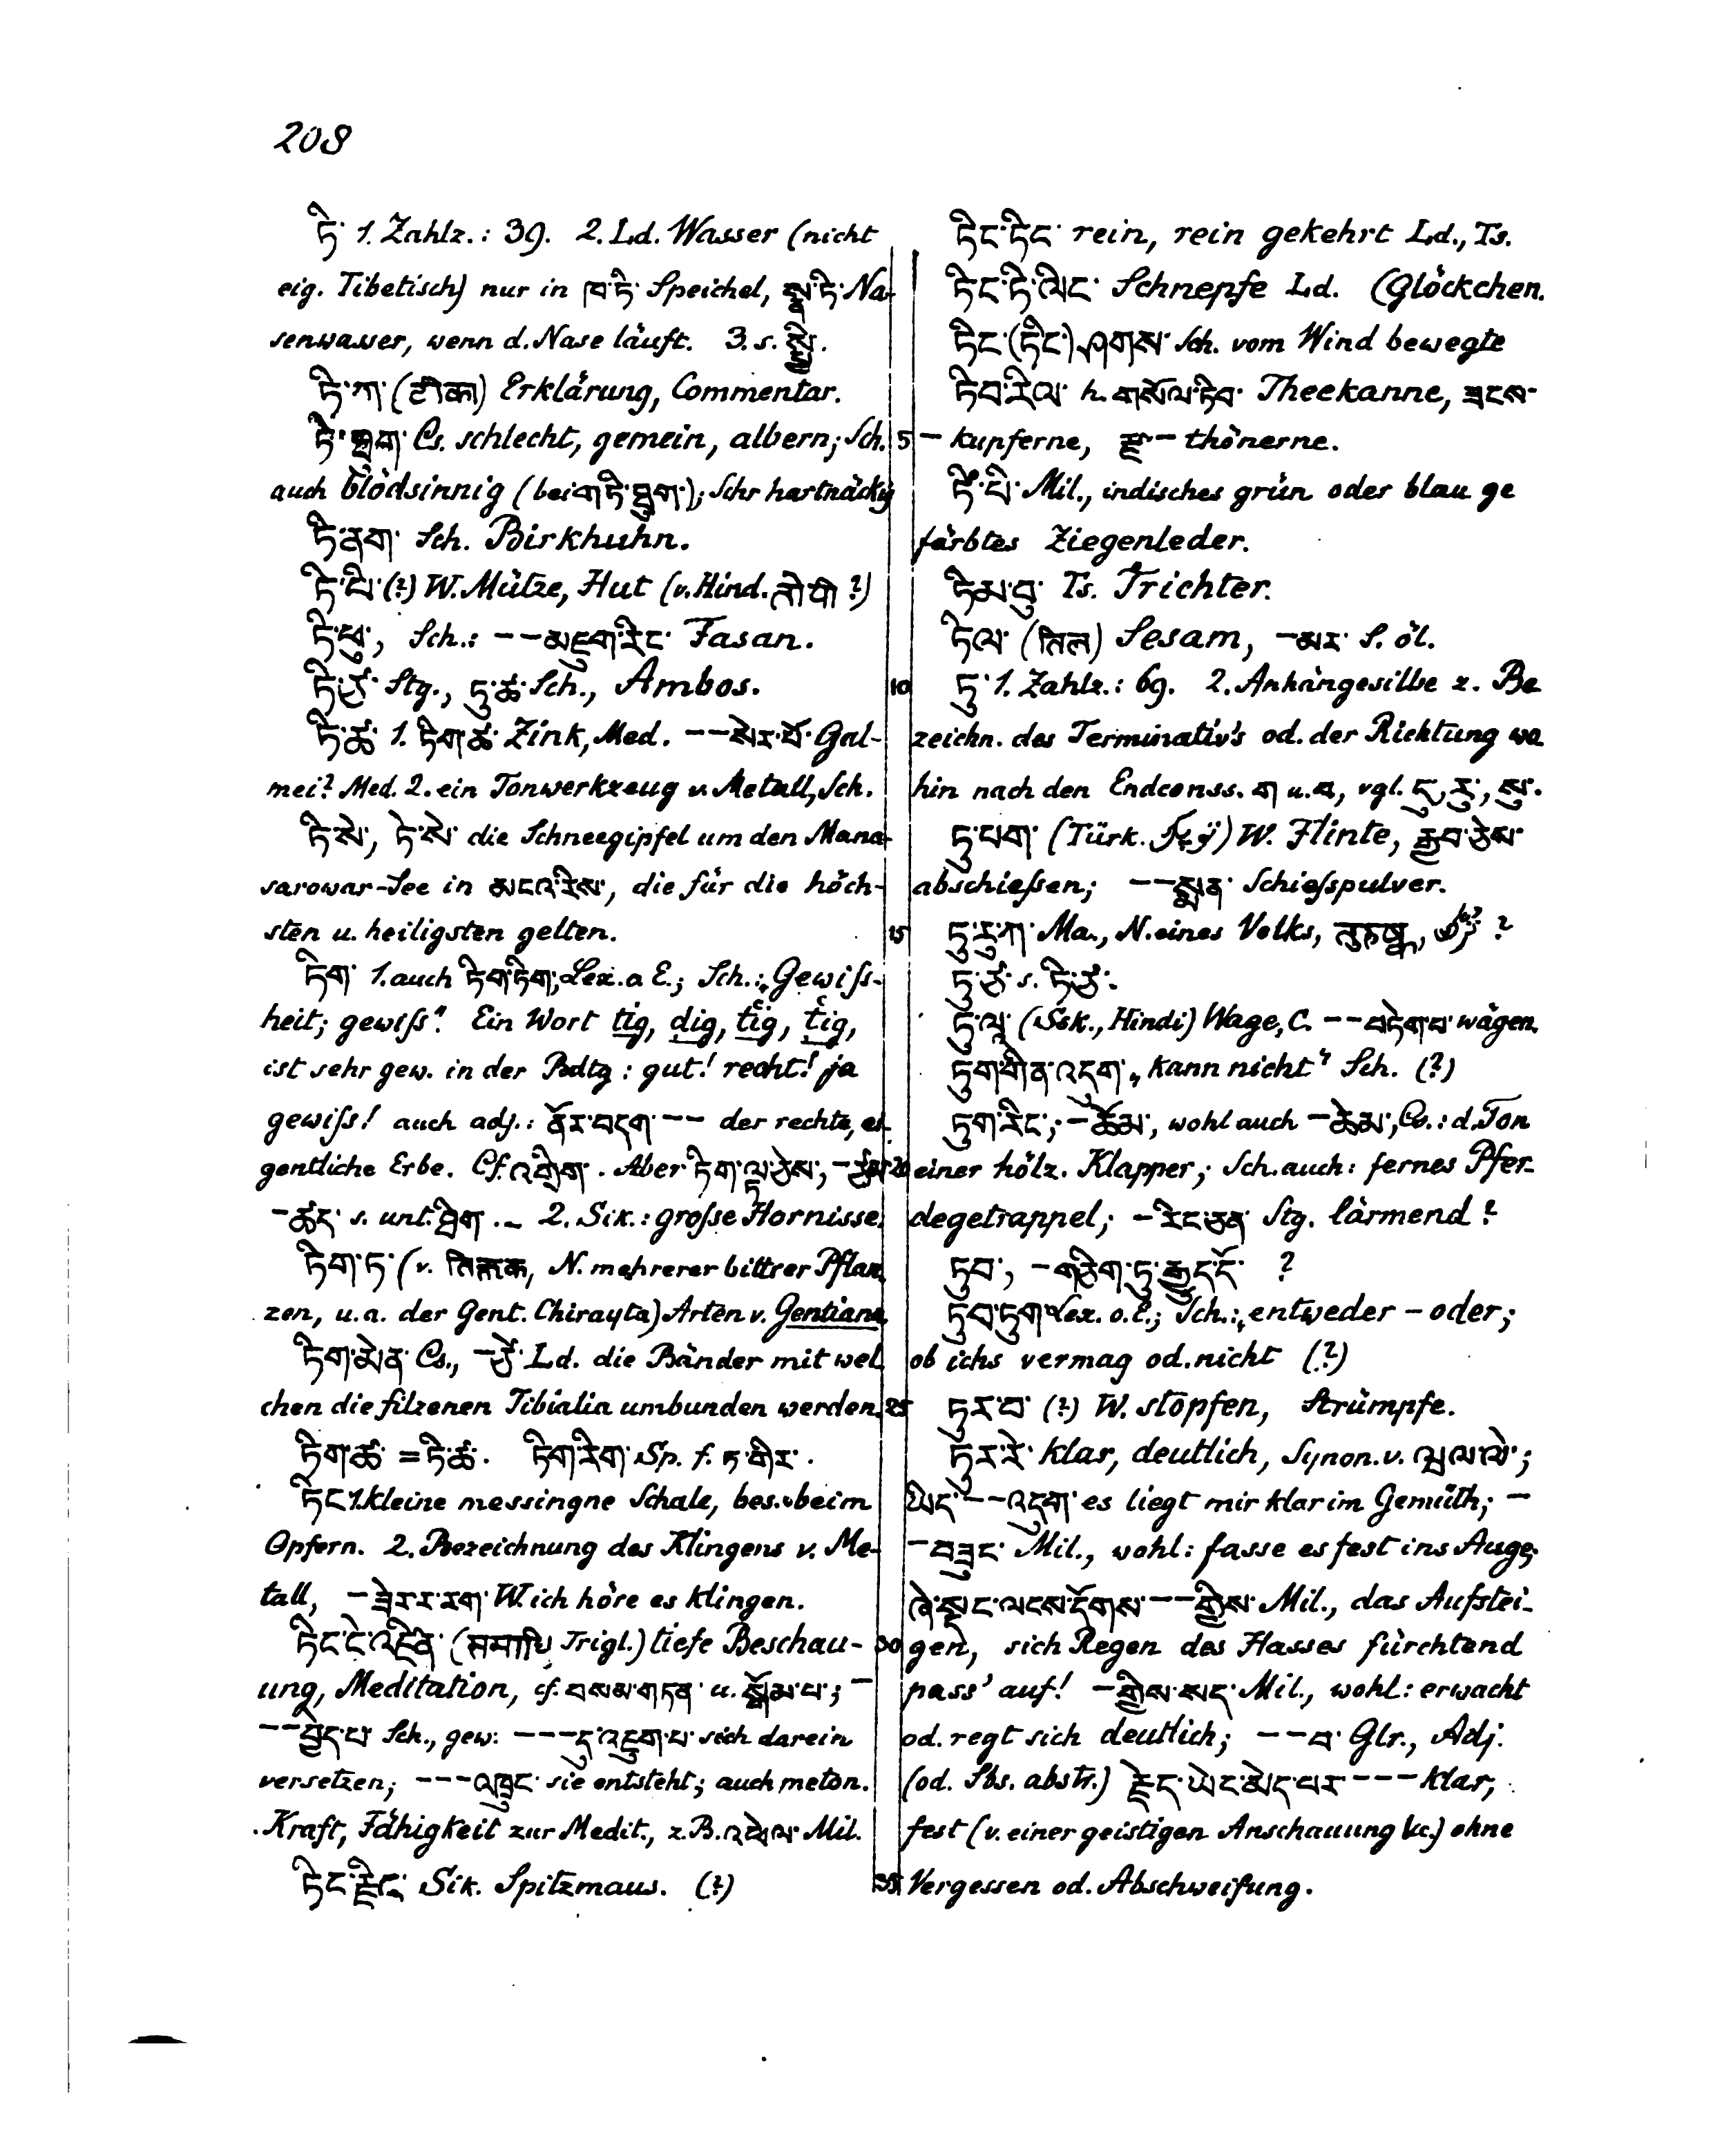 208
ཏི་ 1. Zahlz.: 39. 2. Ld. Wasser (nicht
eig. Tibetisch) nur in ཁ་ཏི་ Speichel, སྣ་ཏི་ Na-
senwasser, wenn d. Nase läuft. 3. s.
ཏི་ཀ་ (टीका) Erklärung, Commentar.
ཏི་ Cs. schlecht, gemein, albern; Sch.
auch blödsinnig (bei ); Schr hartnäckig
ཏི་ནག་ Sch. Birkhuhn.
ཏི་པི་ (?) W. Mütze, Hut (v. Hind. टोपी ?)
ཏི་ཕུ་, Sch.: -- མཇུག་རིང་ Fasan.
ཏི་ཙོ་ Stg., ཏུ་ཚ་ Sch., Ambos.
ཏི་ཚ་ 1. ཏིག་ཚ་ Zink, Med. -- སེར་པོ་ Gal-
mei? Med. 2. ein Tonwerkzeug v. Metall, Sch.
ཏི་སེ་, ཏེ་སེ་ die Schneegipfel um den Mana-
sarowar-See in མངའ་རིས་, die für die höch-
sten u. heiligsten gelten.
ཏིག་ 1. auch ཏིག་ཏིག་; Lex. o E.; Sch.: „Gewiſs-
heit; gewiſs“. Ein Wort tig, dig, ṭig, ṭig,
ist sehr gew. in der Bdtg: gut! recht! ja
gewiſs! auch adj.: ནོར་བདག་ -- der rechte, ei-
gentliche Erbe. Cf. འགྲིག་. Aber ཏིག་ལྟ་བྱེས་, -
- ཚད་ s. unt. ཐིག་. _ 2. Sik.: groſse Hornisse.
ཏིག་ཏ་ (v. तिक्तक, N. mehrerer bittrer Pflan-
zen, u. a. der Gent. Chirayta) Arten v. Gentiana.
ཏིག་མེན་ Cs., - ཙེ་ Ld. die Bänder mit wel-
chen die filzenen Tibialia umbunden werden.
ཏིག་ཚ་ = ཏི་ཚ་. ཏིག་རིག་ Sp. f. ཏ་གིར་.
ཏིང་ 1. kleine messingne Schale, bes. beim
Opfern. 2. Bezeichnung des Klingens v. Me-
tall, - ཟེར་ར་རག་ W. ich höre es klingen.
ཏིང་ངེ་འཛིན་ (समाधि Trigl.) tiefe Beschau-
ung, Meditation, cf. བསམ་གཏན་ u. སྒོམ་པ་; -
-- བྱེད་པ་ Sch., gew: --- དུ་འཇུག་པ་ sich darein
versetzen; --- འཁྲུང་ sie entsteht; auch meton.
Kraft, Fähigkeit zur Medit., z. B. འཕེལ་ Mil.
ཏིང་རྫིང་ Sik. Spitzmaus. (?)
ཏིང་ཏིང་ rein, rein gekehrt Ld., Ts.
ཏིང་ཏི་ལིང་ Schnepfe Ld. (Glöckchen.
ཏིང་(ཏིང་)ཤགས་ Sch. vom Wind bewegte
ཏིབ་རིལ་ h. གསོལ་ཏིབ་ Theekanne, ཟངས་
5 - kupferne, རྫ་ - thönerne.
ཏིཾ་པི་ Mil., indisches grün oder blau ge
färbtes Ziegenleder.
ཏིམ་བུ་ Ts. Trichter.
ཏིལ་ (तिल) Sesam, - མར་ S. öl.
10 ཏུ་ 1. Zahlz.: 69. 2. Anhängesilbe z. Be
zeichn. des Terminativ's od. der Richtung wo
hin nach den Endconss. ག u. བ, vgl. དུ, རུ་, སུ་.
ཏུ་པག་ (Türk. ) W. Flinte, རྒྱབ་ཅེས་
abschieſsen; -- སྨན་ Schieſspulver.
15 ཏུ་རུ་ཀ་ Ma., N. eines Volks, तुरुष्क, ?
ཏུ་ཙོ་ s. ཏི་ཙོ་.
ཏུ་ལཱ་ (Ssk., Hindi) Wage, C. -- བདེག་པ་ wägen.
ཏུག་གིན་འདག་ „kann nicht“ Sch. (?)
ཏུག་རིང་; - ཆོམ་, wohl auch - ཆེམ་, Cs.: d. Ton
20 einer hölz. Klapper; Sch. auch: fernes Pfer-
degetrappel; - རིང་ཅན་ Stg. lärmend?
ཏུབ་, - གཅིག་ཏུ་རྒྱུད་དོ་ ?
ཏུབ་ཏུག་ Lex. o. E.; Sch.: „entweder - oder;
ob ichs vermag od. nicht (?)
25 ཏུར་བ་ (?) W. stopfen, Strümpfe.
ཏུར་རེ་ klar, deutlich, Synon. v. ལྷལ་ལེ་;
ཡིད་ -- འདུག་ es liegt mir klar im Gemüth; -
- བཟུང་ Mil., wohl: fasse es fest ins Auge;
ཞེ་སྡང་ལངས་དོགས་ -- གྱིས་ Mil., das Aufstei-
30 gen, sich Regen des Hasses fürchtend
pass' auf! - གྱིས་སད་ Mil., wohl: erwacht
od. regt sich deutlich; -- བ་ Glr., Adj.
(od. Sbs. abstr.) རྗེད་ཡེང་མེད་པར་ --- klar,
fest (v. einer geistigen Anschauung &c.) ohne
35 Vergessen od. Abschweifung.